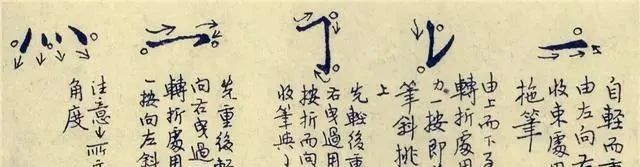 自輕而重
由左向右
收束處用
拖筆
由上而下至
轉折處用
力一按即
筆斜挑
上
先輕後重
右曳過用
按折而向
收筆與丁
先重後輕
向右曳過
轉折處用
一按向左斜
注意↓所
角度